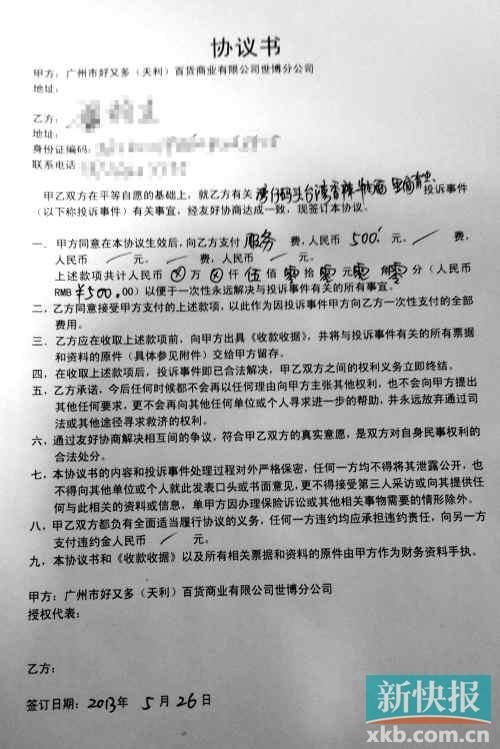 协议书
甲方：广州市好又多（天利）百货商业有限公司世博分公司
地址：
乙方：
地址：
身份证编码：
联系电话
甲乙双方在平等自愿的基础上，就乙方有关湾仔码头台湾香辣牛肉面里面有虫投诉事件
（以下称投诉事件）有关事宜，经友好协商达成一致，现签订本协议。
一、甲方同意在本协议生效后，向乙方支付 服务 费，人民币 500元， / 费，
人民币 / 元。 / 费，人民币 / 元。
上述款项共计人民币 ⊗ 万 ⊗ 仟 伍 佰 零 拾 零 元 零 角 零 分（人民币
RMB ¥500.00）以便于一次性永远解决与投诉事件有关的所有事宜。
二、乙方同意接受甲方支付的上述款项，以此作为因投诉事件甲方向乙方一次性支付的全部
费用。
三、乙方应在收取上述款项前，向甲方出具《收款收据》，并将与投诉事件有关的所有票据
和资料的原件（具体参见附件）交给甲方留存。
四、在收取上述款项后，投诉事件即已合法解决，甲乙双方之间的权利义务立即终结。
五、乙方承诺，今后任何时候都不会再以任何理由向甲方主张其他权利，也不会向甲方提出
其他任何要求，更不会再向其他任何单位或个人寻求进一步的帮助，并永远放弃通过司
法或其他途径寻求救济的权利。
六、通过友好协商解决相互间的争议，符合甲乙双方的真实意愿，是双方对自身民事权利的
合法处分。
七、本协议书的内容和投诉事件处理过程对外严格保密，任何一方均不得将其泄露公开，也
不得向其他单位或个人就此发表口头或书面意见，更不得接受第三人采访或向其提供任
何与此相关的资料或信息，单甲方因办理保险诉讼或其他相关事物需要的情形除外。
八、甲乙双方都负有全面适当履行协议的义务，任何一方违约均应承担违约责任，向另一方
支付违约金人民币 / 元。
九、本协议书和《收款收据》以及所有相关票据和资料的原件由甲方作为财务资料手执。
甲方：广州市好又多（天利）百货商业有限公司世博分公司
授权代表：
乙方：
签订日期：2013年 5 月 26 日
新快报
xkb.com.cn